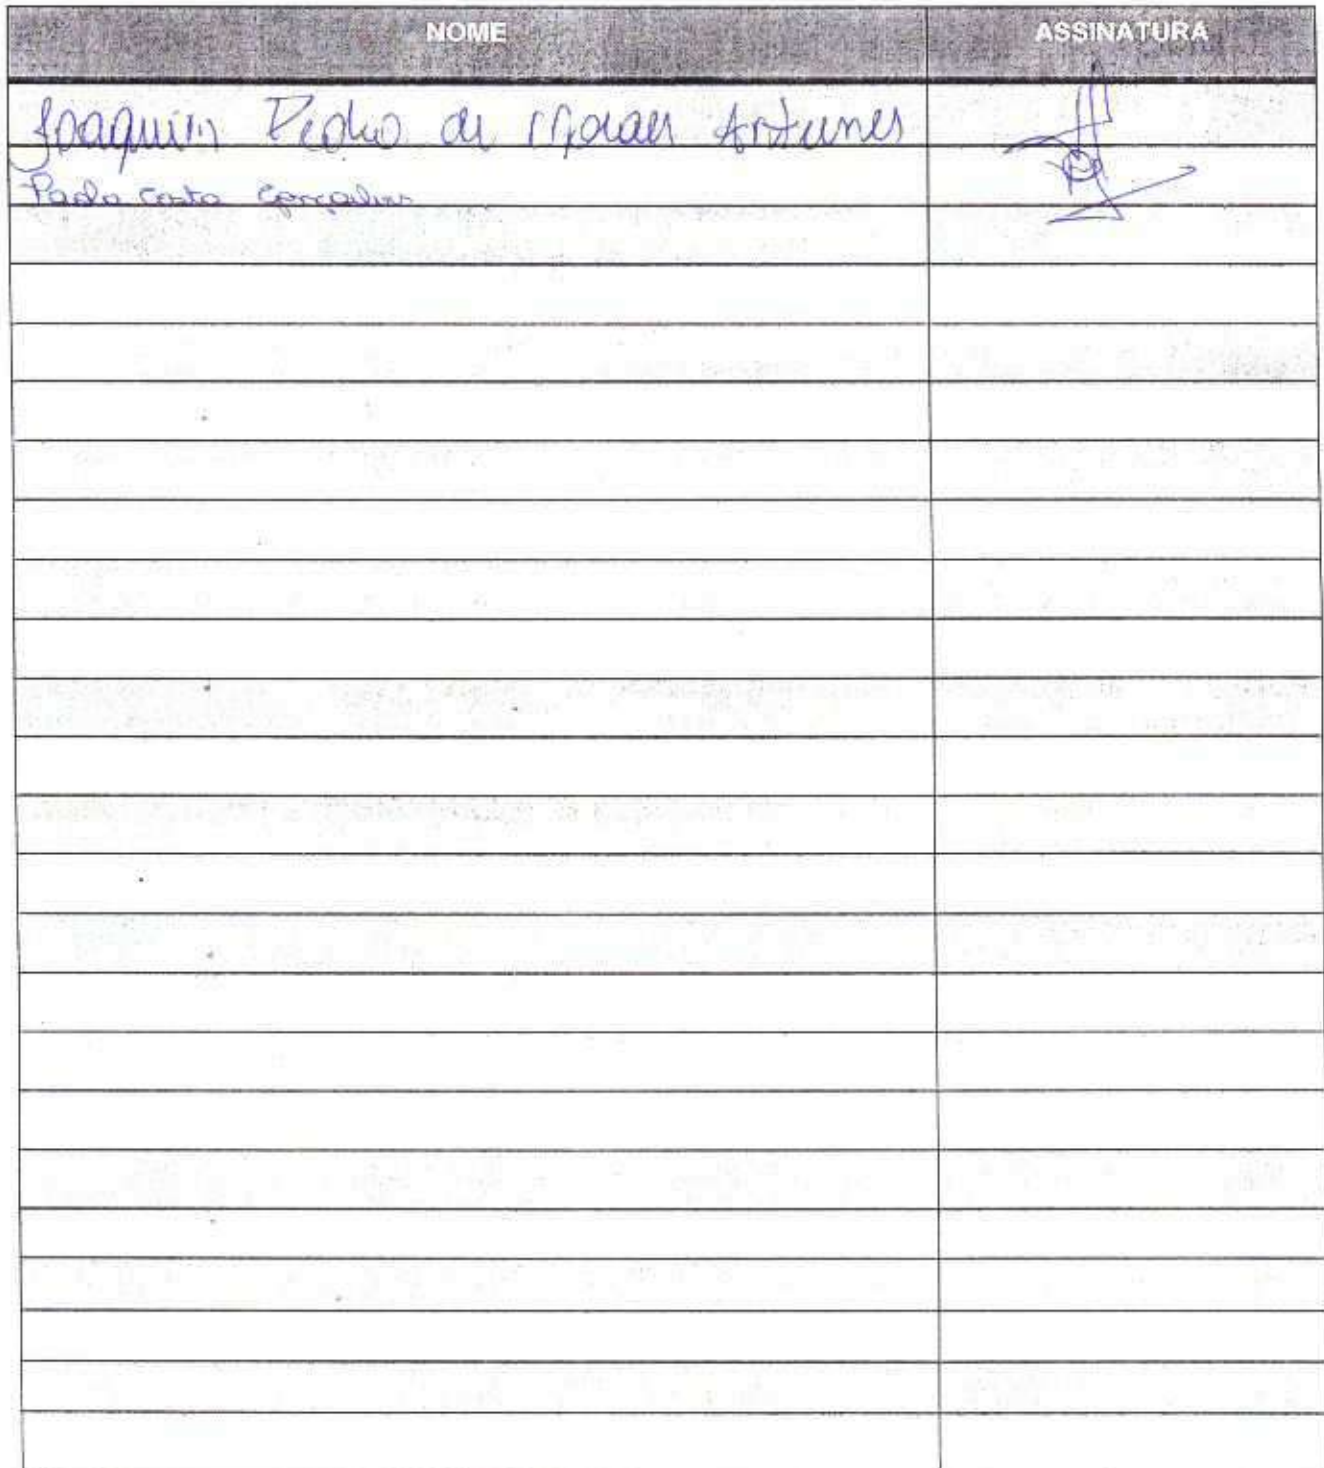 NOME ASSINATURA
Joaquim Pedro de Moraes Antunes
Paola Costa Gonçalves